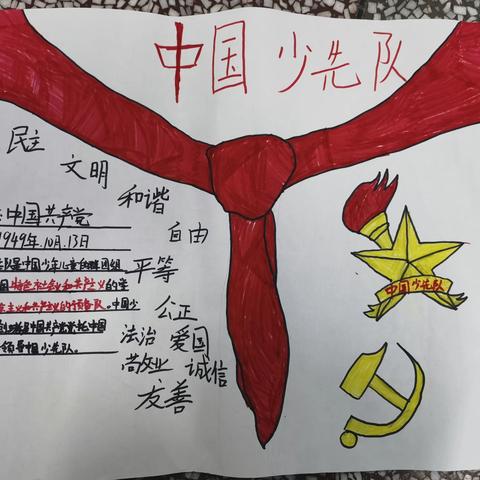 中国少先队
民主
文明
和谐
自由
平等
公正
法治 爱国
敬业 诚信
友善
中国共产党
1949年.10月.13日
队是中国少年儿童的群团组
国特色社会和共产主义的学
主义和共产主义的预备队。中国少
是中国共产党委托中国
领导中国少先队。
中国少先队